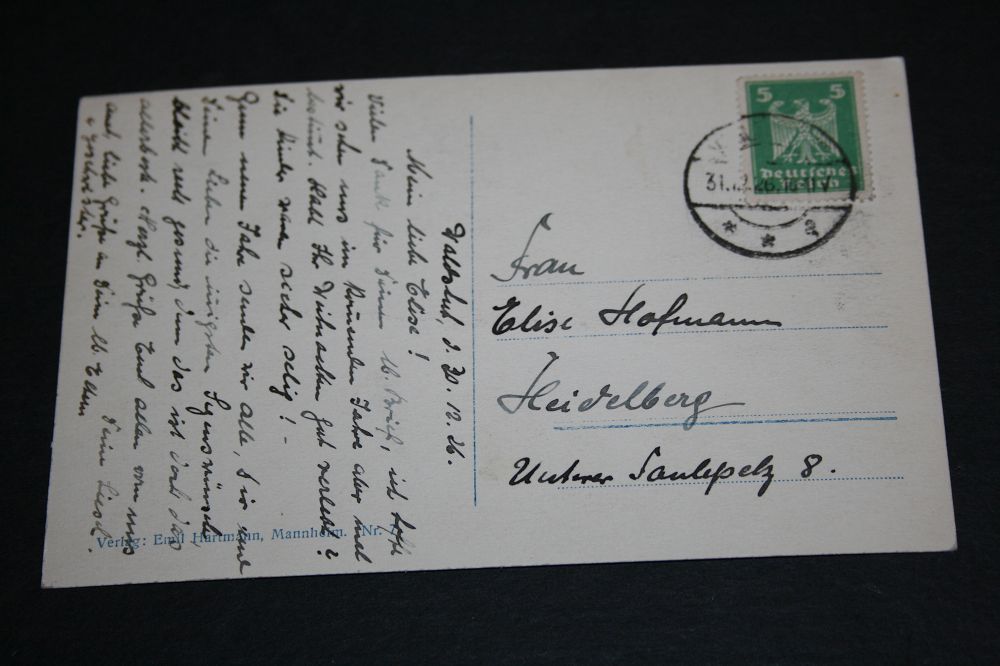 Waldshut, d. 30.12.26.
Mein liebe Elise!
Vielen Dank für Deinen lb. Brief, ich hoffe
wir sehen uns im kommenden Jahre aber mal
bestimt. Habt Ihr Weihnachten gut verlebt?
Die Kinder waren sicher selig! -
Zum neuen Jahre senden wir alle, Dir und
Deinen Lieben die innigsten Segenswünsche,
bleibt recht gesund, denn das ist doch das
allerbeste. Herzl. Grüße Euch allen von uns
auch liebe Grüße an Deine lb. Eltern
u. Geschwister.
Deine Liesel.
Verlag: Emil Hartmann, Mannheim. Nr.
5 5
Deutsches
Reich
31.12.26.
* * a
Frau
Elise Hofmann
Heidelberg
Unterer 8.